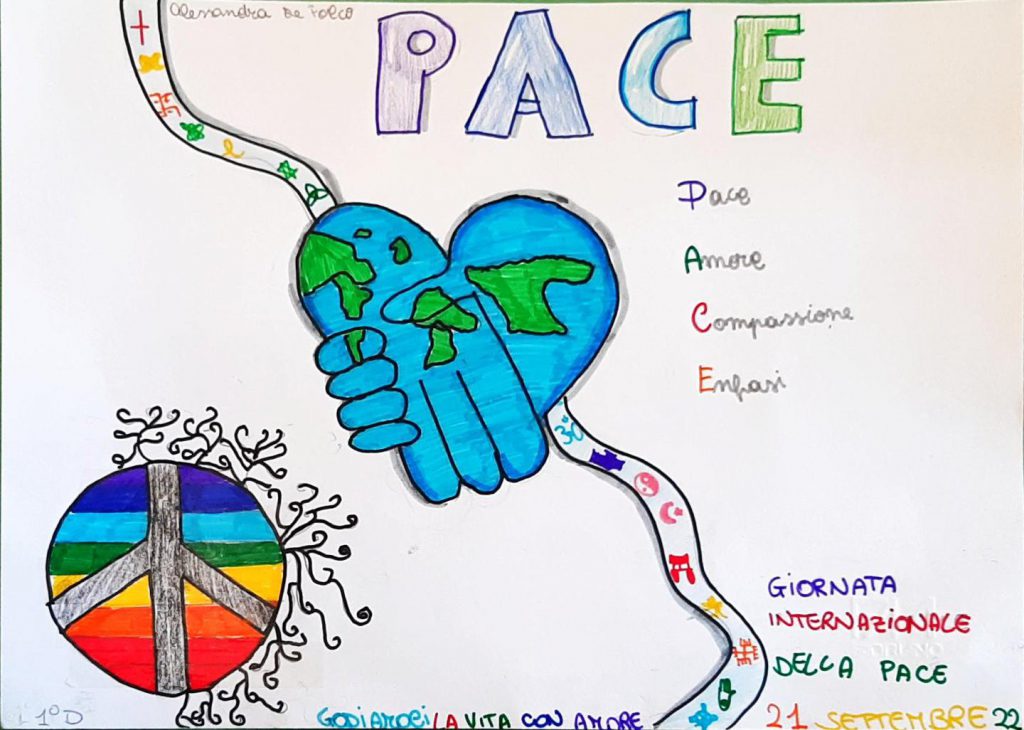 Alessandra De Falco
PACE
Pace
Amore
Compassione
Enfasi
GIORNATA
INTERNAZIONALE
DELLA PACE
21 SETTEMBRE 22
GODIAMOCI LA VITA CON AMORE
1°D